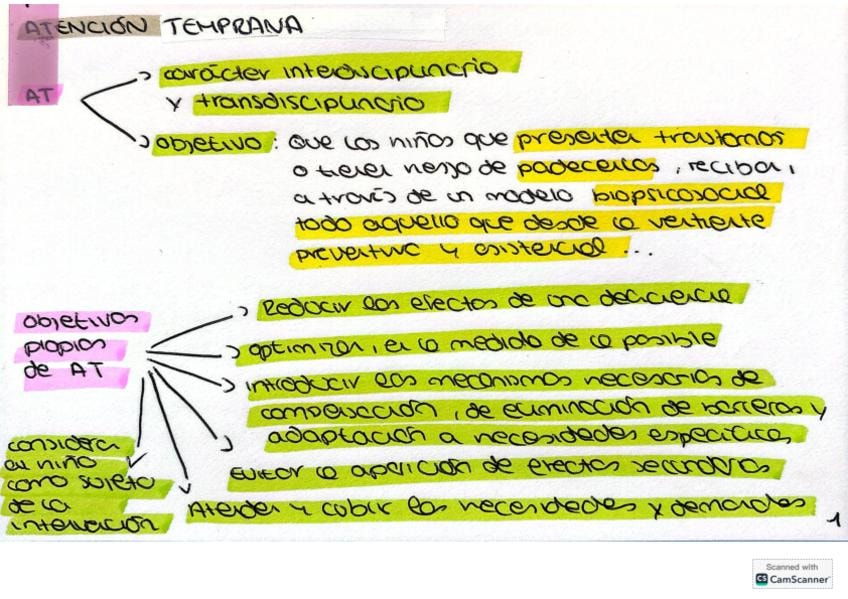 ATENCIÓN TEMPRANA
AT
carácter interdisciplinario
y transdisciplinario
objetivo: que los niños que presentan trastornos
o tienen riesgo de padecerlos, reciban,
a través de un modelo biopsicosocial
todo aquello que desde la vertiente
preventiva y asistencial ...
objetivos
propios
de AT
Reducir los efectos de una deficiencia
optimizar, en la medida de lo posible
introducir los mecanismos necesarios de
compensación, de eliminación de barreras y
adaptación a necesidades específicas
Evitar la aparición de efectos secundarios
Atender y cubrir las necesidades y demandas
considerar
al niño
como sujeto
de la
intervención
1
Scanned with
CS CamScanner